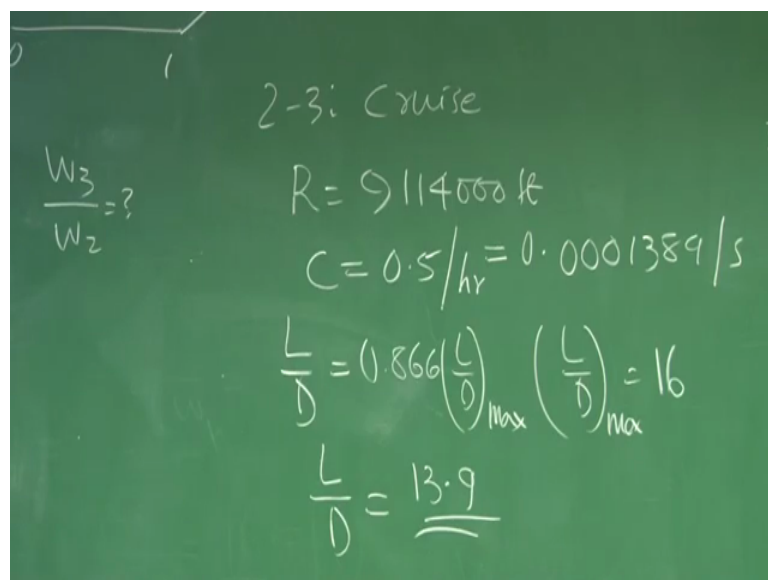 0
1
2-3: Cruise
W3/W2 = ?
R = 9114000 ft
C = 0.5/hr = 0.0001389/s
L/D = 0.866(L/D)max (L/D)max = 16
L/D = 13.9